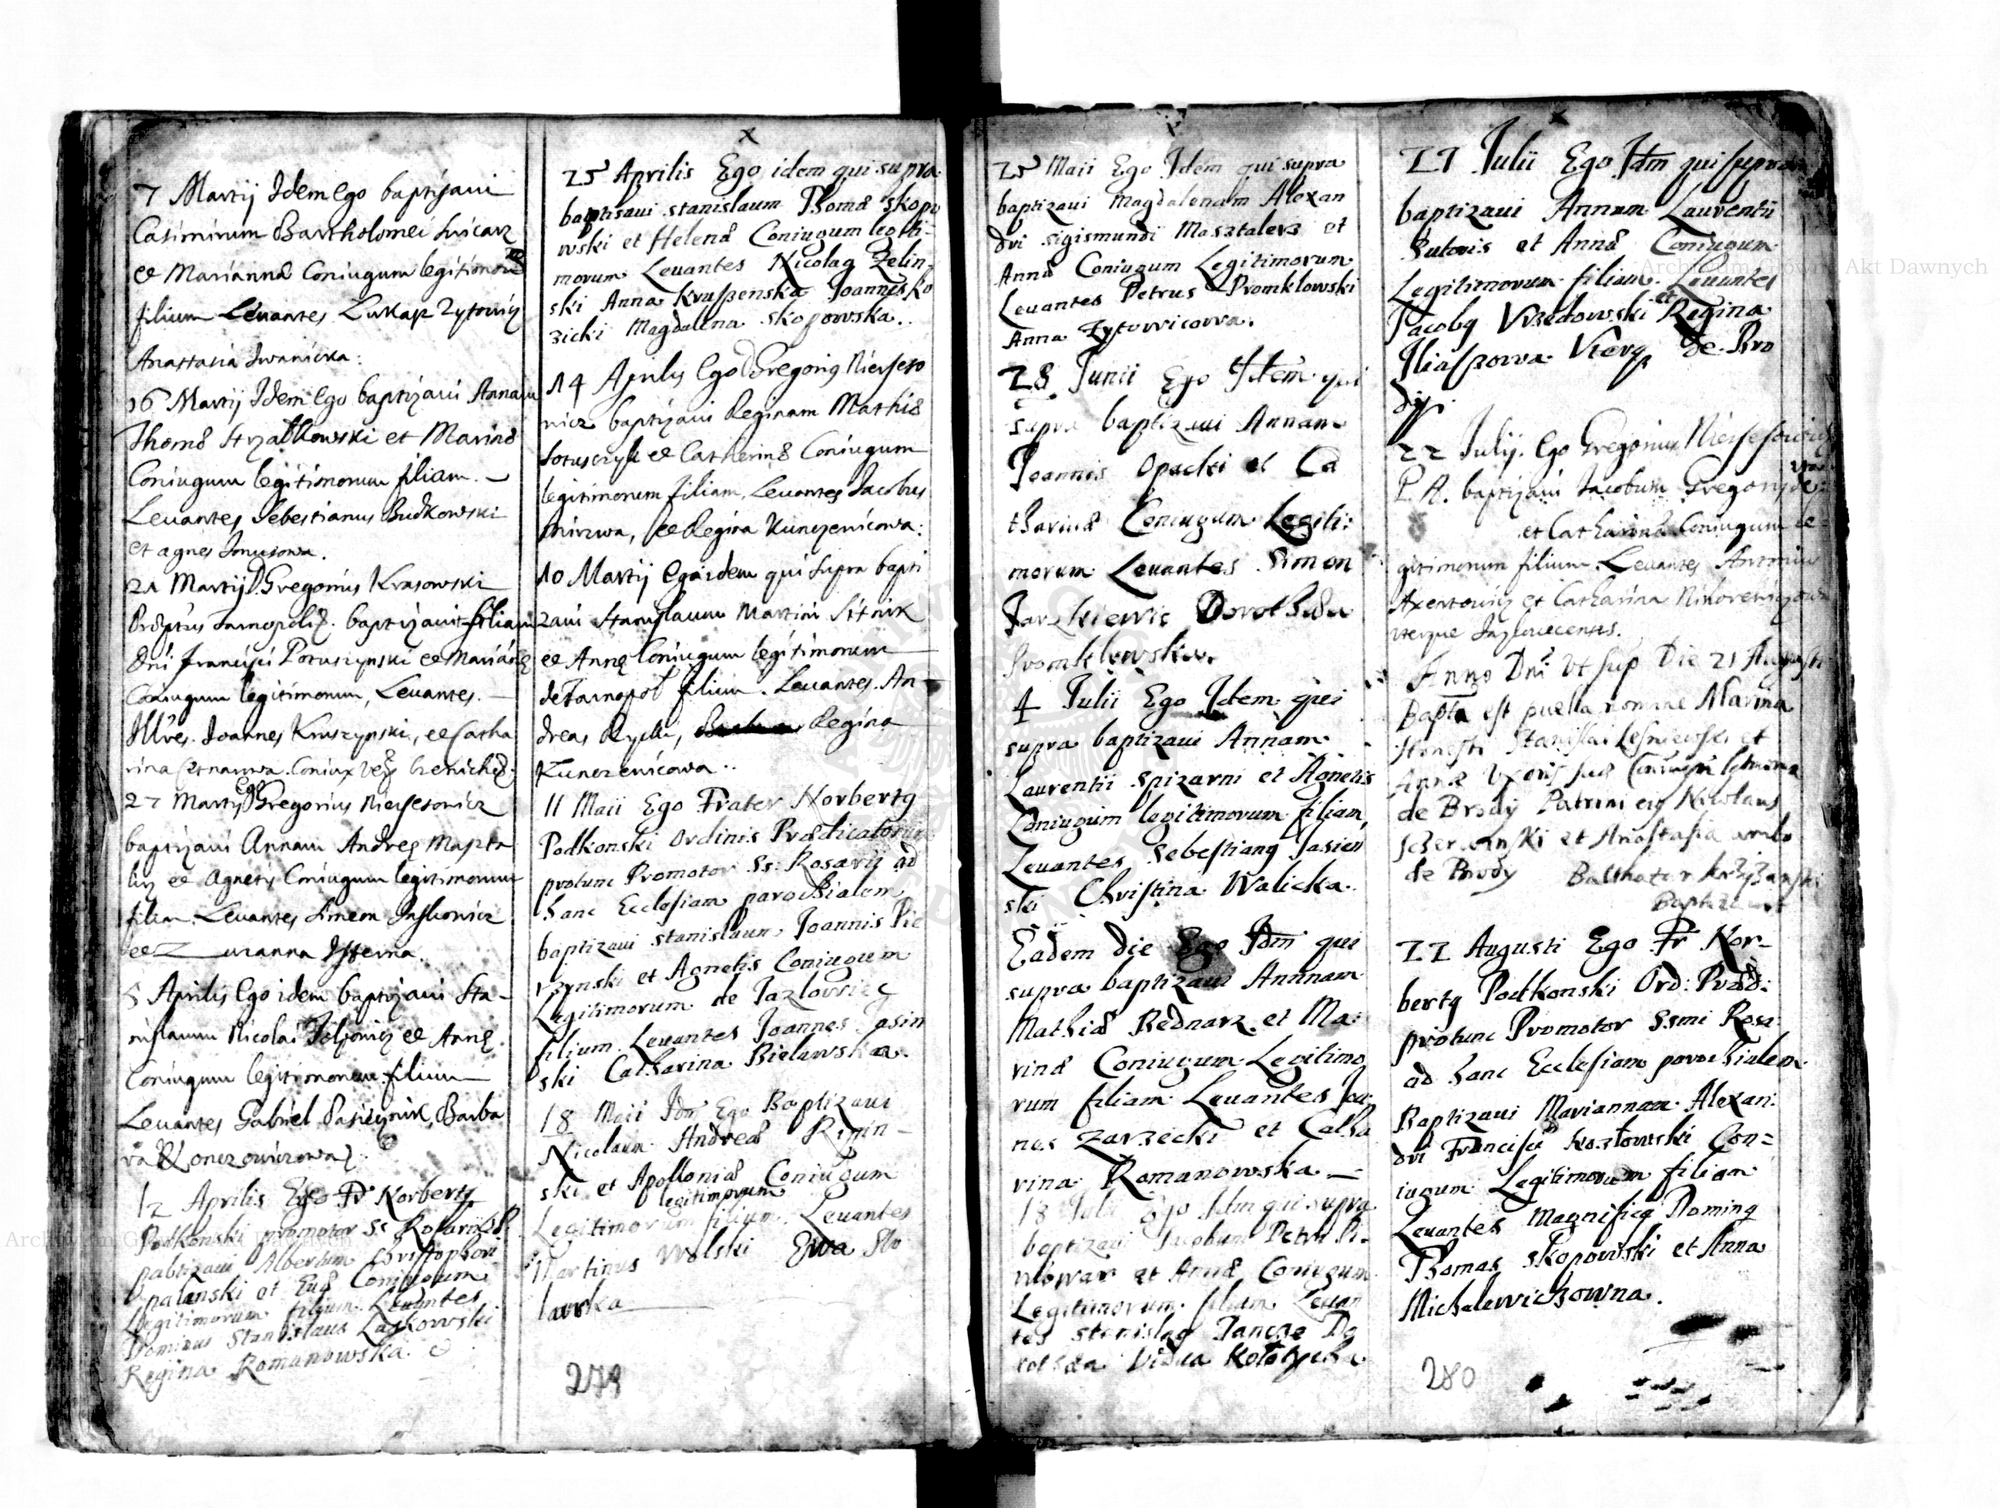 7 Martij Idem Ego baptizaui
Casimirum Bartholomei
et Mariannæ Coniugum legitimorum
filium Leuantes Lukasz Zytowicz
Anastasia Iwanicka.
16 Martij Idem Ego baptizaui Annam
Thomæ Strzałkowski et Marinæ
Coniugum legitimorum filiam.
Leuantes Sebestianus Budkowski
et agnes
21 Martij D. Gregorius Krasowski
baptizauit filiam
Dni Francisci Potuszynski et Marianę
Coniugum legitimorum, Leuantes.
Illres. Joannes Kruszynski, et Catha
rina
27 Martij Ego Gregorius Niersesowicz
baptizaui Annam Andreę Maszta
lirz et Agnetis Coniugum legitimorum
filiam. Leuantes Simeon Jaskowicz
et Zuzanna
5 Aprilis Ego idem baptizaui Sta-
nislaum Nicolai et Annę
Coniugum legitimorum filium
Leuantes Gabriel Pasiecznik, Barba
ra
12 Aprilis Ego Fr Norbertg
Podkonski promotor SS Rosarij
pabtizaui Albertum Christophori
palanski et Euæ Coniugum
Legitimorum filium. Leuantes
Dominus Stanislaus Laskowski
Regina Romanowska.
x
25 Aprilis Ego idem qui supra
baptisaui stanislaum Thomæ Skopo
wski et Helenæ Coniugum legiti-
morum Leuantes Nicolag Zelin-
ski Anna Kruszenska Joannes Ko
zicki Magdalena Skopowska..
14 Aprilis Ego Gregorig Nierseso
wicz baptizaui Reginam Mathiæ
et Catherinæ Coniugum
legitimorum filiam, Leuantes Jacobus
Mirzwa, et Regina Kunczewicowa:
10 Martij Ego idem qui supra bapti
zaui Stanislaum Martini Sitnik
et Annę Coniugum legitimorum
de Tarnopol filium. Leuantes. An-
dreas Rycki, Regina
Kunczewicowa..
11 Maii Ego Frater Norbertg
Podkonski Ordinis Prædicatorum
protunc Promotor SS: Rosarij ad
hanc Ecclesiam parochialem
baptizaui stanislaum Joannis Pie
rzynski et Agnetis Coniugum
Legitimorum de Jazlowiec
filium. Leuantes Joannes Jasin
ski Catharina Bielawska.
18 Maii Idm Ego Baptizaui
Nicolaum Andreæ Rynin-
ski et Apolloniæ Coniugum
legitimorum
Legitimorum filium Leuantes
Martinus Wolski Ewa Slo
lawska
279
25 Maii Ego Idem qui supra
baptizaui Magdalenam Alexan
dri sigismundi Masztalerz et
Annæ Coniugum Legitimorum
Leuantes Petrus Promklowski
Anna Zytowicowa.
28 Junii Ego Idem qui
supra baptizaui Annam
Joannis Opacki et Ca
tharinæ Coniugum Legiti:
morum Leuantes Simon
Jarzkiewic Dorothæa
Promklowska.
4 Julii Ego Idem qui
supra baptizaui Annam
Laurentii spizarni et Agnetis
Coniugum legitimorum filiam,
Leuantes Sebestiang Jasien
ski Christina Walicka.
Eadem die Ego Idm qui
supra baptizaui Annnam
Mathiæ Bednarz et Ma:
rinæ Coniugum Legitimo
rum filiam Leuantes Joa:
nes Zarzecki et Catha
rina Romanowska
18 Julii Ego Idm qui supra
baptizaui Jacobum Petri Pi-
wowar et Annæ Coniugum
Legitimorum filium Leuan
tes stanislag Do
rothea Vidua
x
21 Julii Ego Idm qui supra
baptizaui Annam Laurentii
Sutoris et Annæ Coniugum
Legitimorum filiam. Leuantes
Jacobg Vrzedowski et Regina
Iliaszowa de Bro
dy.
22 Julij. Ego Gregorius Niersesowicz
P. A. baptizaui Jacobum Gregorij
et Catharinæ Coniugum le-
gitimorum filium. Leuantes Antonius
Axentowicz et Catharina
Anno Dni Vt sup Die 21 Augusti
Bapta est puella nomine Marina
Stanislai Lesniewski et
Annæ Uxoris suæ
de Brody Patrini eig Nicolaus
et Anastasia ambo
de Brody Balthazar
Baptizauit
22 Augusti Ego Fr Nor-
bertg Podkonski Ord: Præd:
protunc Promotor SSmi Rosa:
ad hanc Ecclesiam parochialem
Baptizaui Mariannam Alexan:
dri Francisci Kozłowski Con-
iugum Legitimorum filiam
Leuantes Magnificg Doming
Thomas Skopowski et Anna
Michalewiczowna.
280